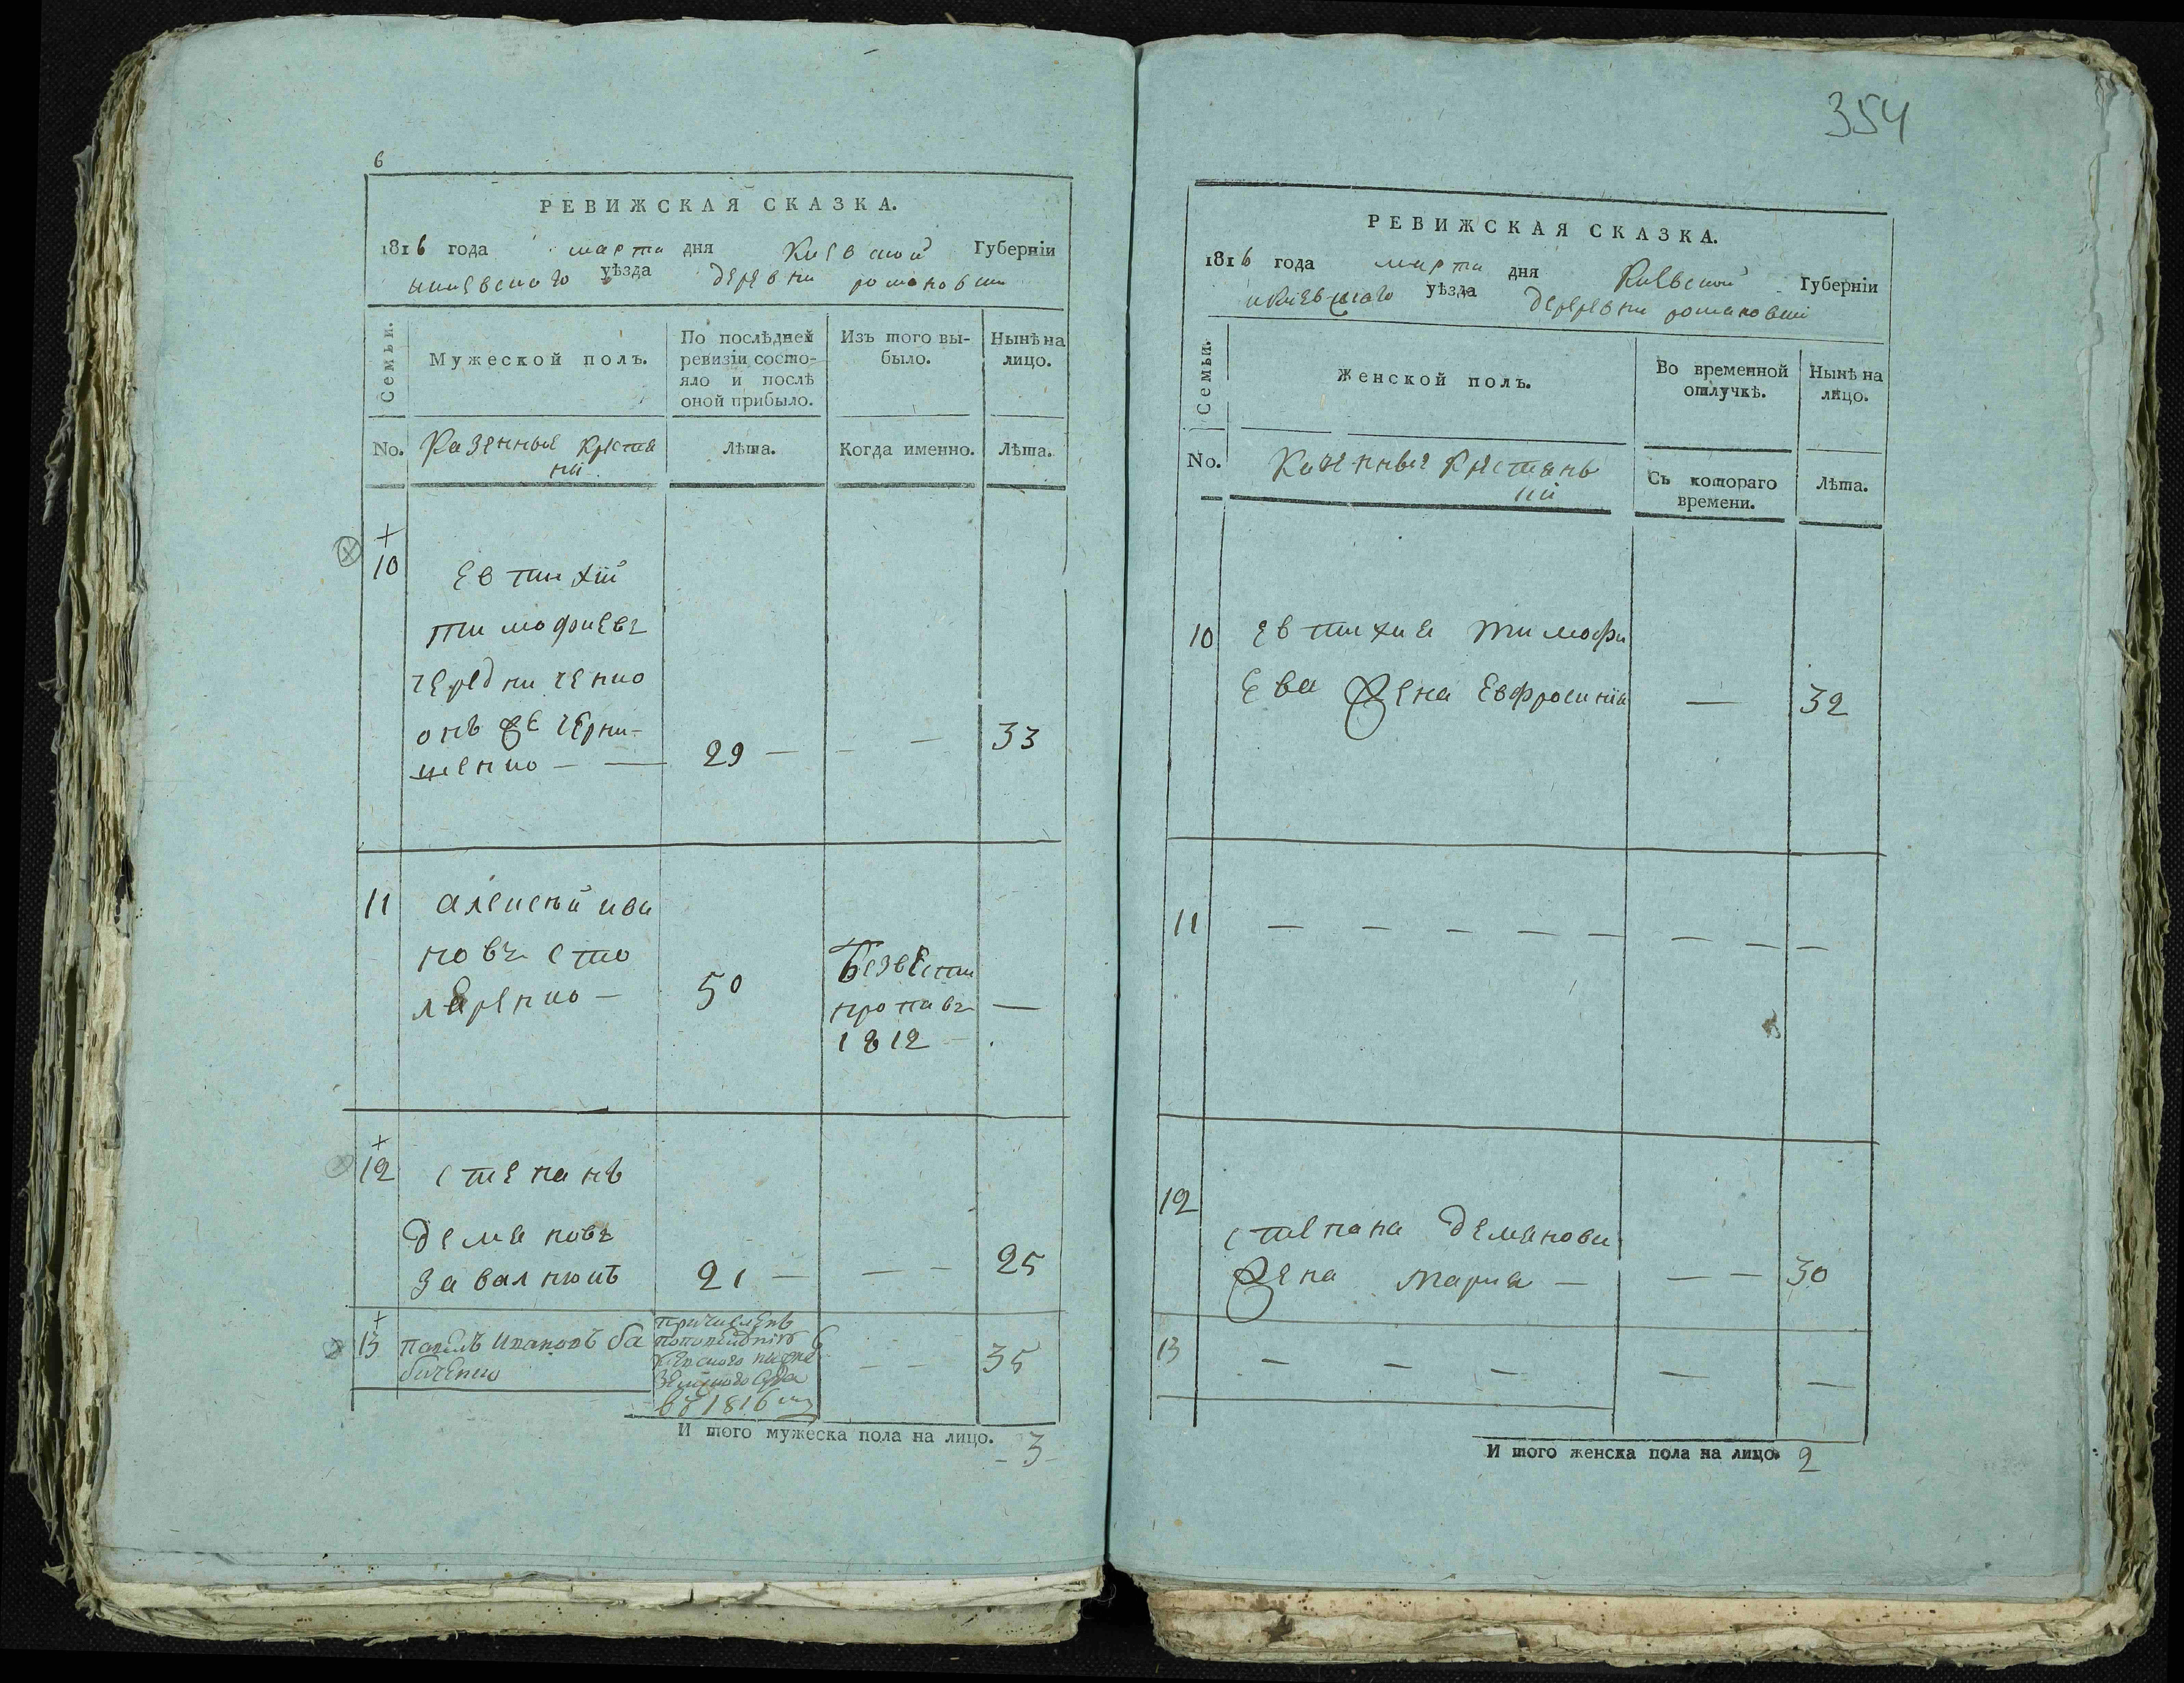 6
РЕВИЖСКАЯ СКАЗКА.
1816 года марта дня Киевской Губерніи
икиевского уѣзда деревни романовки
Семьи.
Мужеской полъ.
По послѣдней ревизіи состо-
яло и послѣ оной прибыло.
Изъ того вы-
было.
Нынѣ на лицо.
No.
Казенные крстяне
Лѣта.
Когда именно.
Лѣта.
10
евтихій
тимофиевъ
чередниченко
онъ же черни-
шенко — — 29 — — — 33
11
алексѣй ива
новъ сто
ляренко — 50
Безвести
пропавъ —
1812
12
степанъ
демановъ
завалнюкъ 21 — — — 25
13
павелъ Ивановъ ба
биченко
причисленъ
земского суда
въ 1816 — — 35
И того мужеска пола на лицо. 3
354
РЕВИЖСКАЯ СКАЗКА.
1816 года марта дня Киевской Губерніи
икиевского уѣзда дереревни романовки
Семьи.
Женской полъ.
Во временной отлучкѣ.
Нынѣ на лицо.
No.
Казенные крстянь
Съ котораго времени.
Лѣта.
10 евтихия тимофи
ева жена Евфросинія — 32
11 — — — — — — — —
12
степана деманова
жена Мария — — — 30
13 — — — — —
И того женска пола на лицо. 2